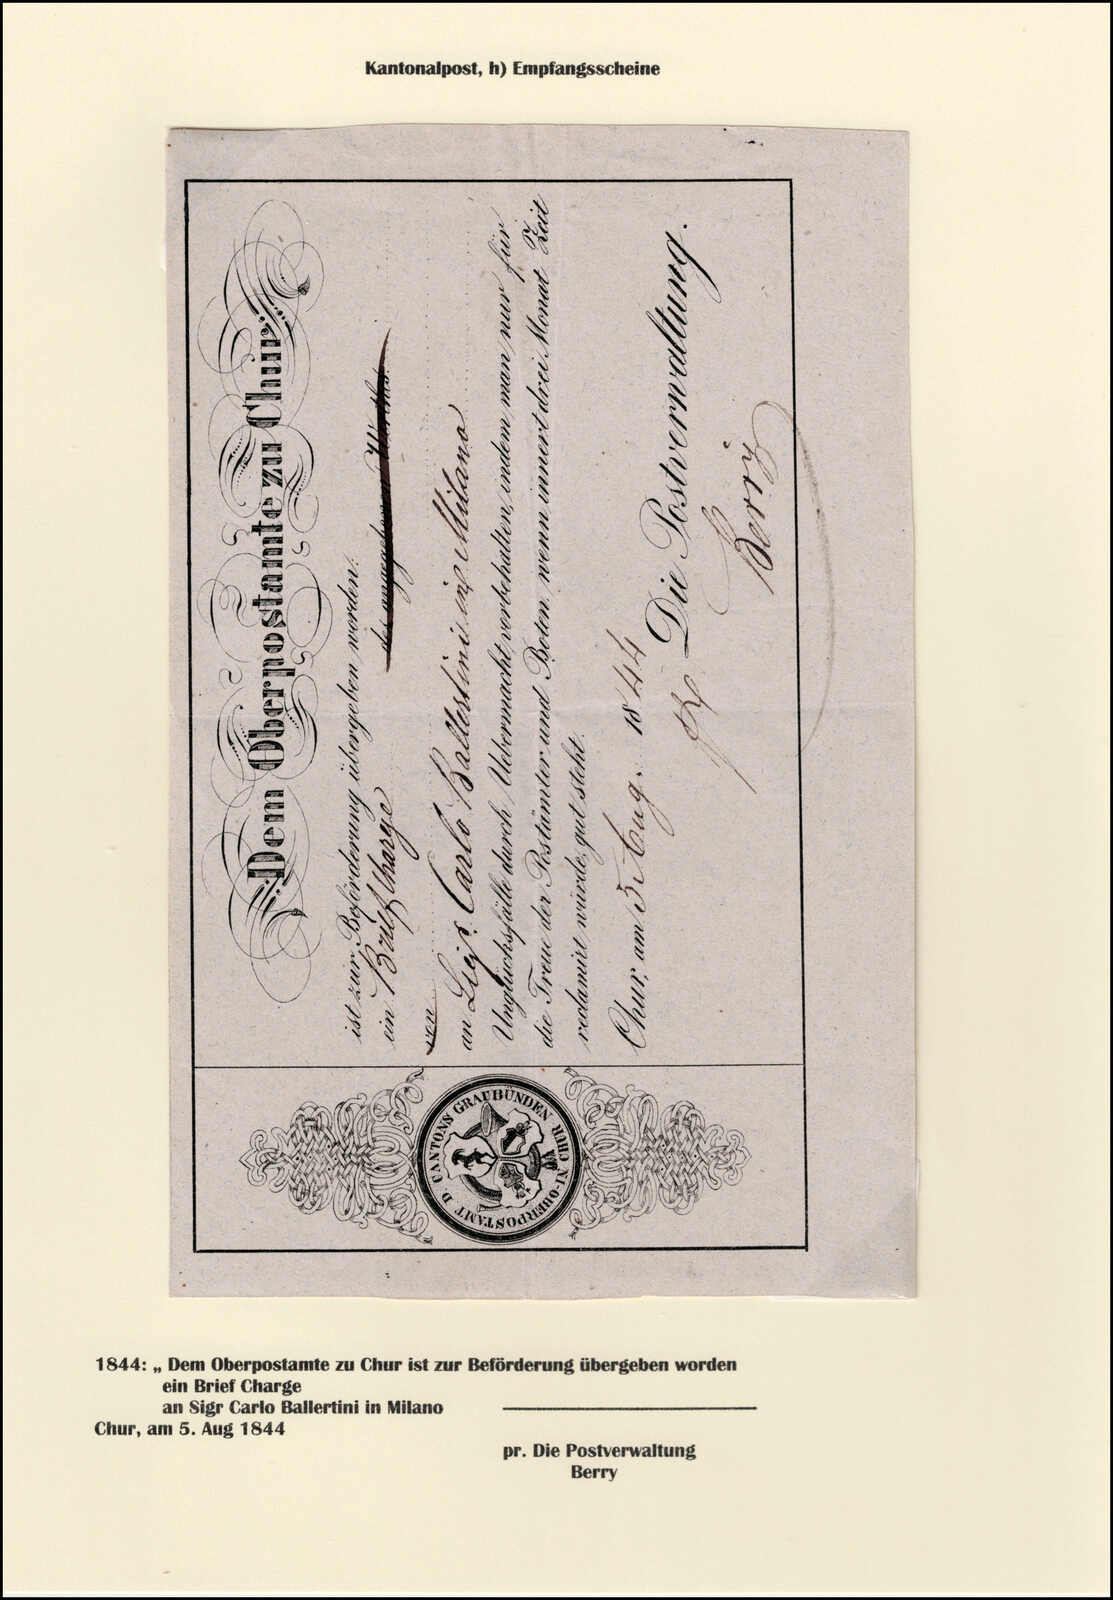 Kantonalpost, h) Empfangsscheine
Dem Oberpostamte zu Chur
ist zur Beförderung übergeben worden:
ein Brief Charge des angegebenen Werthes
von
an Sigr. Carlo Ballertini in Milano
Unglücksfälle durch Uebermacht vorbehalten, indem man nur für
die Treue der Postämter und Boten, wenn innert drei Monat Zeit
reclamirt würde, gut steht.
Chur, am 5 Aug. 1844
pr. Die Postverwaltung.
Berry
OBERPOSTAMT D. CANTONS GRAUBÜNDEN IN CHUR
1844: „ Dem Oberpostamte zu Chur ist zur Beförderung übergeben worden
ein Brief Charge
an Sigr Carlo Ballertini in Milano
Chur, am 5. Aug 1844
pr. Die Postverwaltung
Berry